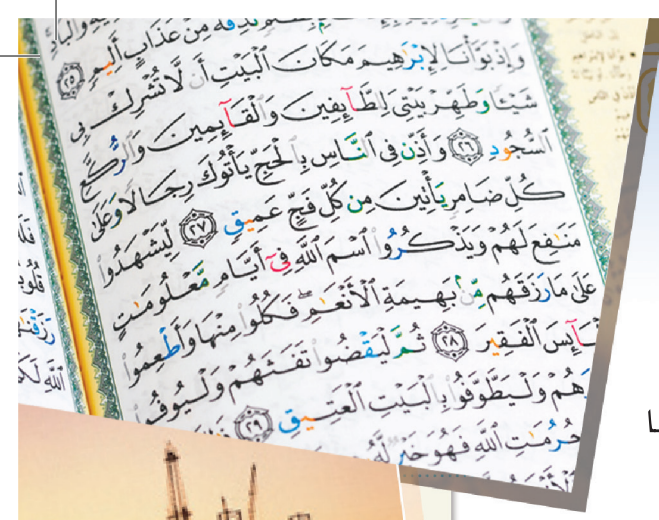 وَالْبَادِ
نُّذِقْهُ مِنْ عَذَابٍ أَلِيمٍ ٢٥
وَإِذْ بَوَّأْنَا لِإِبْرَٰهِيمَ مَكَانَ ٱلْبَيْتِ أَن لَّا تُشْرِكْ بِى
شَيْـًٔا وَطَهِّرْ بَيْتِىَ لِلطَّآئِفِينَ وَٱلْقَآئِمِينَ وَٱلرُّكَّعِ
ٱلسُّجُودِ ٢٦ وَأَذِّن فِى ٱلنَّاسِ بِٱلْحَجِّ يَأْتُوكَ رِجَالًا وَعَلَىٰ
كُلِّ ضَامِرٍ يَأْتِينَ مِن كُلِّ فَجٍّ عَمِيقٍ ٢٧ لِّيَشْهَدُوا۟
مَنَٰفِعَ لَهُمْ وَيَذْكُرُوا۟ ٱسْمَ ٱللَّهِ فِىٓ أَيَّامٍ مَّعْلُومَٰتٍ
عَلَىٰ مَا رَزَقَهُم مِّنۢ بَهِيمَةِ ٱلْأَنْعَٰمِ ۖ فَكُلُوا۟ مِنْهَا وَأَطْعِمُوا۟
ٱلْبَآئِسَ ٱلْفَقِيرَ ٢٨ ثُمَّ لْيَقْضُوا۟ تَفَثَهُمْ وَلْيُوفُوا۟
هُمْ وَلْيَطَّوَّفُوا۟ بِٱلْبَيْتِ ٱلْعَتِيقِ ٢٩
حُرُمَٰتِ ٱللَّهِ فَهُوَ خَيْرٌ لَّهُۥ